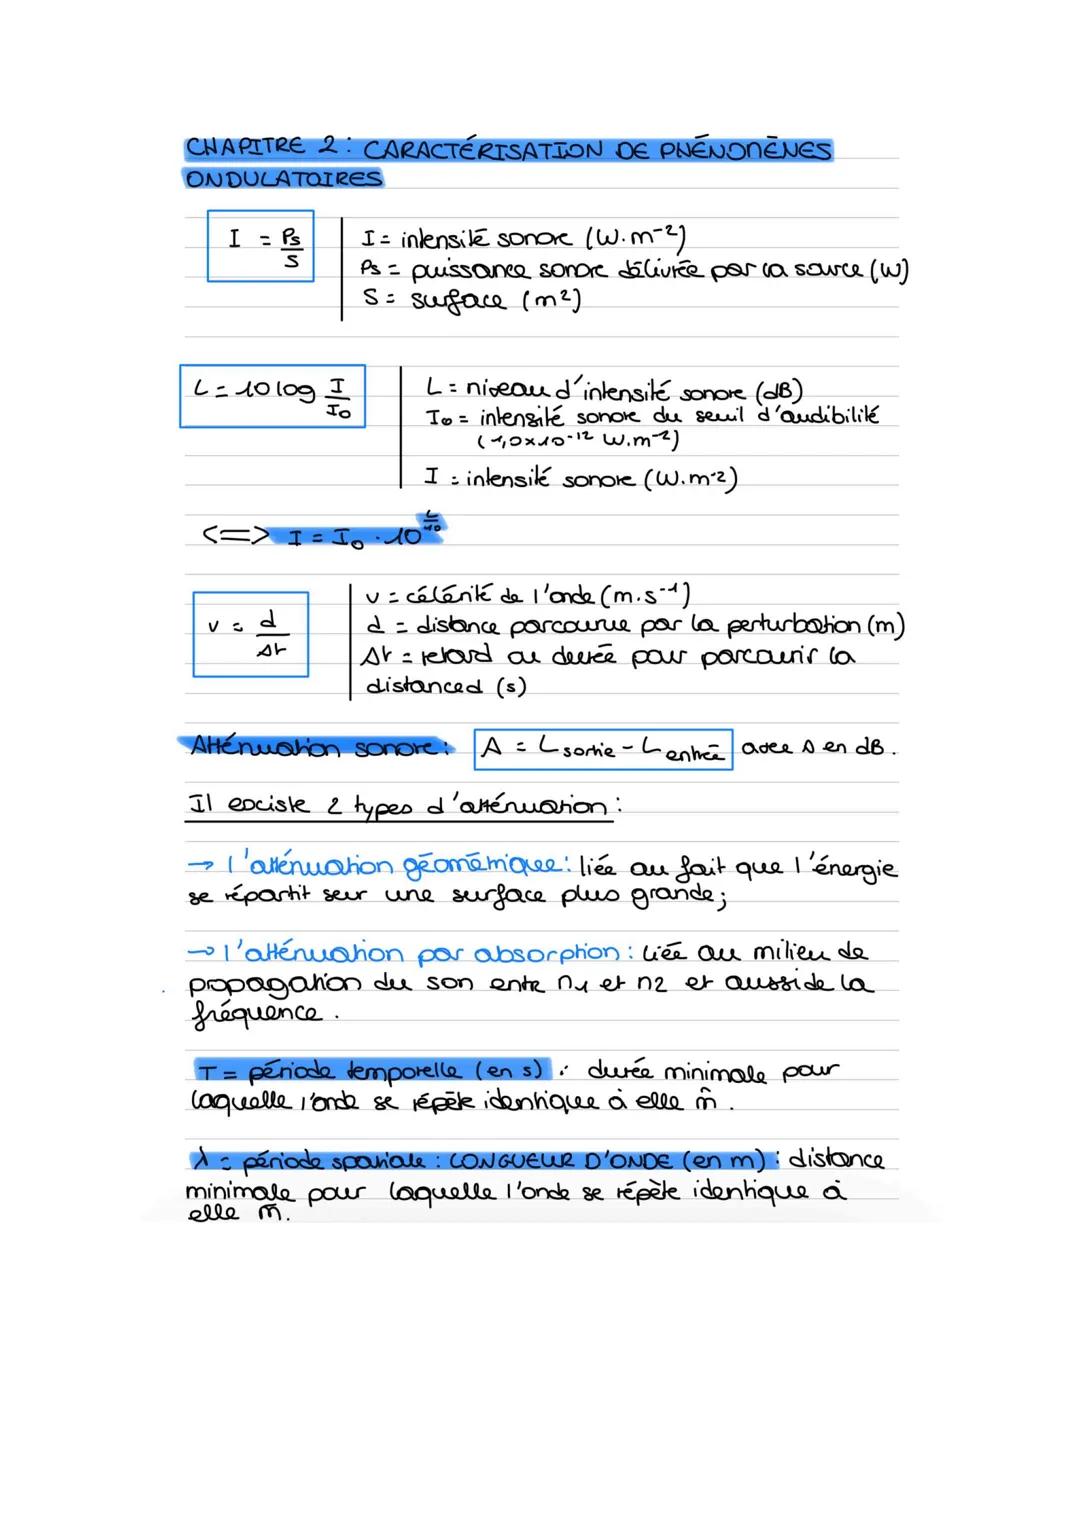 CHAPITRE 2 : CARACTÉRISATION DE PHÉNOMÈNES
ONDULATOIRES
I = Ps/S
I = intensité sonore (W.m-2)
Ps = puissance sonore délivrée par la source (W)
S = surface (m²)
L = 10 log I/I0
L = niveau d'intensité sonore (dB)
I0 = intensité sonore du seuil d'audibilité
(1,0x10-12 W.m-2)
I = intensité sonore (W.m-2)
<=> I = I0 . 10^(L/10)
v = d/Δt
v = célérité de l'onde (m.s-1)
d = distance parcourue par la perturbation (m)
Δt = retard ou durée pour parcourir la
distance d (s)
Atténuation sonore : A = L sortie - L entrée avec A en dB.
Il existe 2 types d'atténuation :
→ l'atténuation géométrique : liée au fait que l'énergie
se répartit sur une surface plus grande ;
→ l'atténuation par absorption : liée au milieu de
propagation du son entre n1 et n2 et aussi de la
fréquence.
T = période temporelle (en s) : durée minimale pour
laquelle l'onde se répète identique à elle m̂.
λ = période spatiale : LONGUEUR D'ONDE (en m) : distance
minimale pour laquelle l'onde se répète identique à
elle m̂.